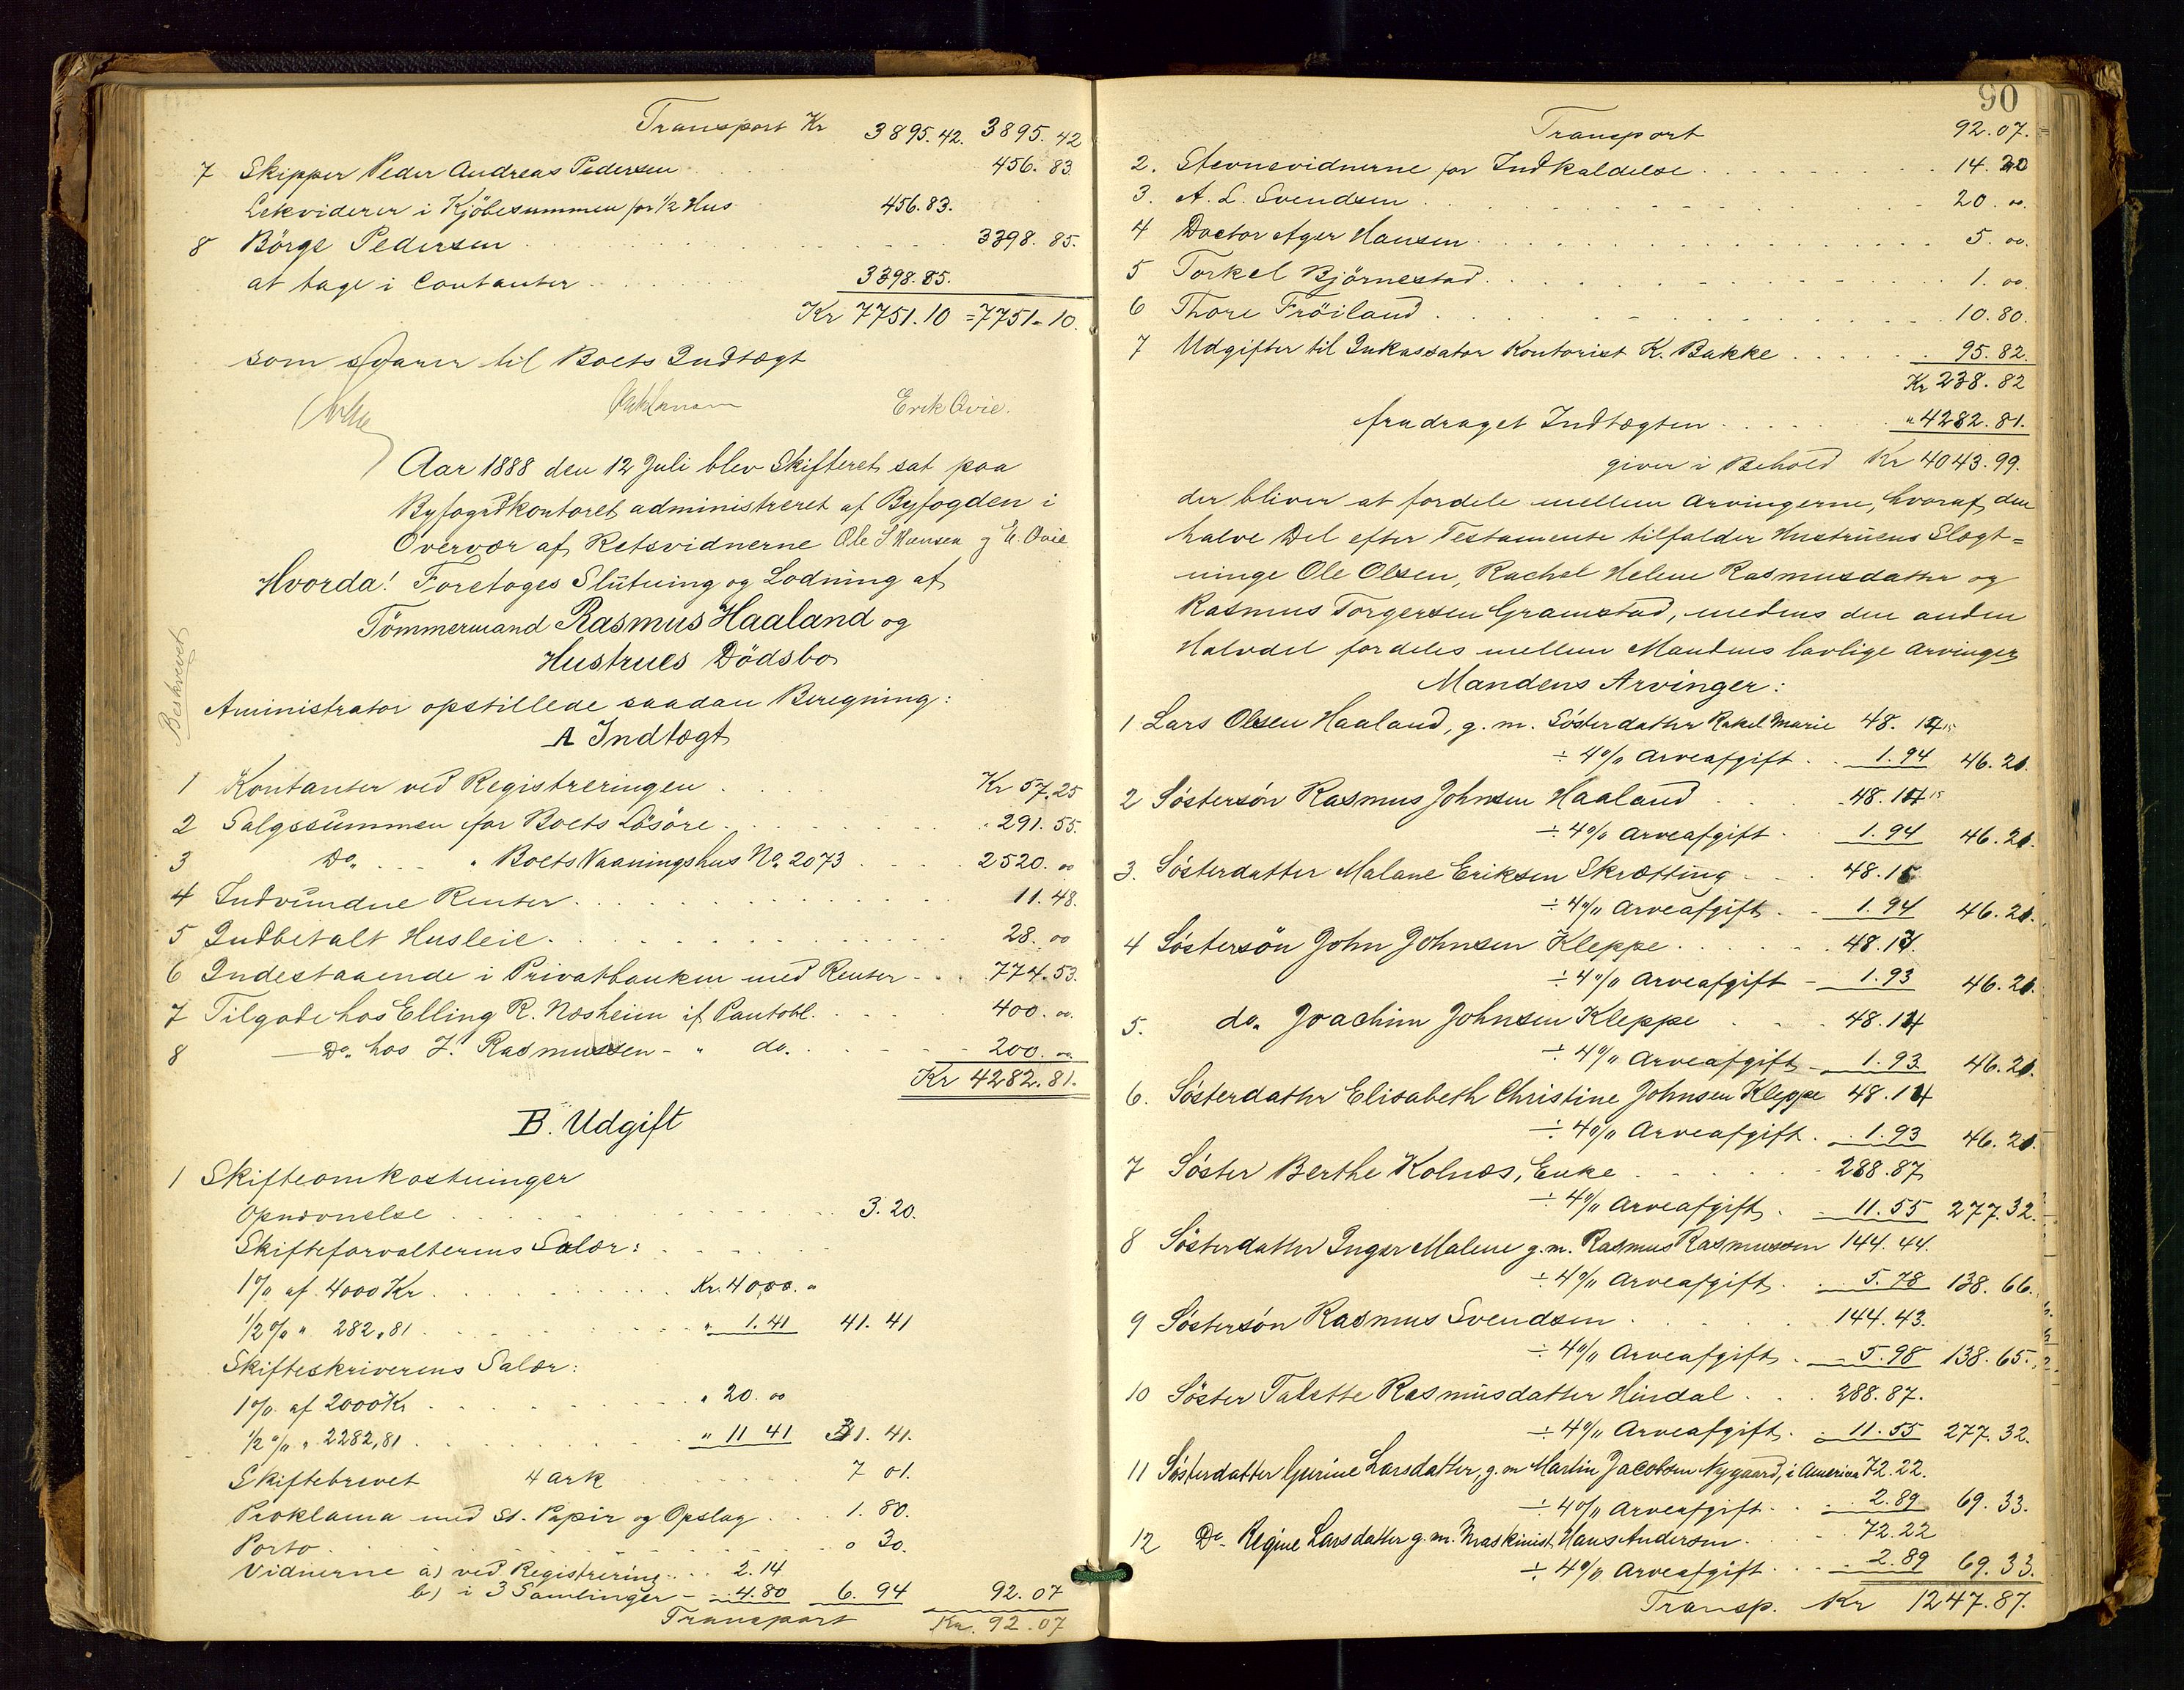 Transport Kr 3895.42. 3895.42
7 Skipper Peder Andreas Pedersen 456.83
Lekviderer i Kjöbesummen for 1/2 Hus 456.83.
8 Börge Pedersen 3398.85.
at tage i Contanter 3398.85.
Kr 7751.10 = 7751-10.
som svarer til Boets Indtægt
Erik Qvie.
Aar 1888 den 12 Juli blev Skifteret sat paa
Byfogedkontoret administreret af Byfogden i
Overvær af Retsvidnerne Ole S Hansen og E. Qvie
Hvorda! Foretoges Slutning og Lodning af
Tömmermand Rasmus Haaland og
Hustrues Dödsbo
Beskrevet
Aministrator opstillede saadan Beregning:
A Indtægt
1 Kontanter ved Registreringen Kr 57.25
2 Salgssummen for Boets Lösöre 291.55.
3 Do. " Boets Vaaningshus No. 2073 2520.00
4 Indvundne Renter 11.48.
5 Indbetalt Husleie 28.00
6 Indestaaende i Privatbanken med Renter 774.53.
7 Tilgode hos Elling R. Næsheim if Pantobl. 400.00.
8 Do. hos J. Rasmussen - " do. 200.00
Kr 4282.81.
B. Udgift
1 Skifteomkostninger
Opnævnelse 3.20.
Skifteforvalterens Salær:
1% af 4000 Kr Kr. 40,00. "
1/2% " 282,81 " 1.41 41.41
Skifteskriverens Salær:
1% af 2000 Kr " 20.00
1/2% " 2282,81 " 11 41 31.41.
Skiftebrevet 4 ark 7 01.
Proklama med St. Papir og Opslag 1.80.
Porto 0 30.
Vidnerne a) ved Registrering 2.14
b) i 3 Samlinger 4.80 6.94 92.07
Transport Kr. 92.07
90
Transport 92.07.
2. Stevnevidnerne for Indkaldelse 14.20
3. A. L. Svendsen 20.00.
4 Doctor Ager Hansen 5.00.
5 Torkel Björnestad 1.00.
6 Thore Fröiland 10.80.
7 Udgifter til Inkassator Kontorist K. Bakke 95.82.
Kr 238.82
fradraget Indtægten " 4282.81.
giver i Behold Kr 4043.99.
der bliver at fordele mellem Arvingerne, hvoraf den
halve Del efter Testamente tilfalder Hustruens Slægt=
ninge Ole Olsen, Rachel Helene Rasmusdatter og
Rasmus Torgersen Gramstad, medens den anden
Halvdel fordeles mellem Mandens lovlige Arvinger
Mandens Arvinger:
1 Lars Olsen Haaland, g. m. Sösterdatter Rakel Marie 48.15
÷ 4% Arveafgift 1.94 46.20.
2 Söstersön Rasmus Johnsen Haaland 48.15
÷ 4% Arveafgift 1.94 46.20.
3. Sösterdatter Malane Eriksen Skrætting 48.15
÷ 4% Arveafgift 1.94 46.20.
4 Söstersön John Johnsen Kleppe 48.14.
÷ 4% Arveafgift 1.93 46.20.
5. do. Joachim Johnsen Kleppe 48.14
÷ 4% Arveafgift 1.93 46.20.
6. Sösterdatter Elisabeth Christine Johnsen Kleppe 48.14
÷ 4% Arveafgift 1.93 46.20.
7 Söster Berthe Kolnæs, Enke 288.87
÷ 4% Arveafgift 11.55 277.32.
8 Sösterdatter Inger Malene g. m. Rasmus Rasmussen 144.44.
÷ 4% Arveafgift 5.78 138.66.
9 Söstersön Rasmus Svendsen 144.43.
÷ 4% Arveafgift 5.98 138.65.
10 Söster Talette Rasmusdatter Hindal 288.87.
÷ 4% Arveafgift 11.55 277.32.
11 Sösterdatter Gurine Larsdatter, g. m Martin Jacobsen Nygaard, i America 72.22.
÷ 4% Arveafgift 2.89 69.33.
12 Do. Regine Larsdatter g. m. Maskinist Hans Andersen 72.22
÷ 4% Arveafgift 2.89 69.33.
Transp. Kr 1247.87.